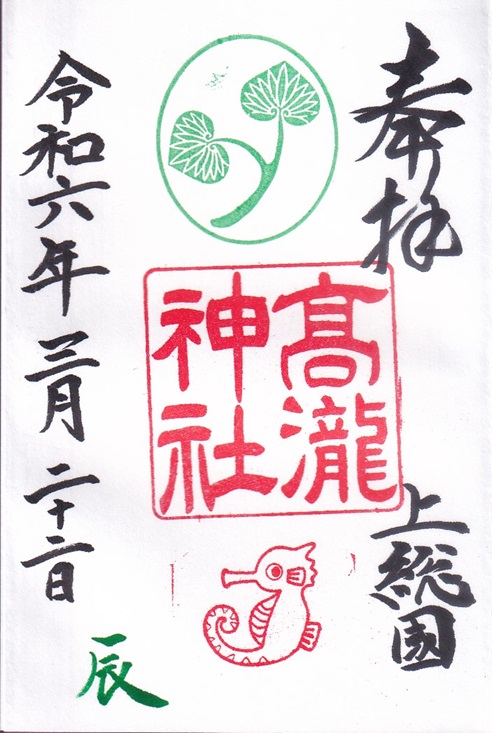 奉拝
上総国
髙瀧
神社
令和六年三月二十二日
辰